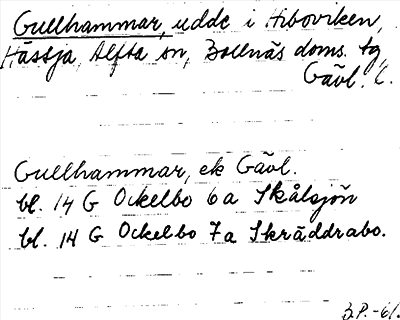 Gullhammar, udde i Hiboviken,
Hässja, Alfta sn, Bollnäs doms. tg,
Gävl. l.
Gullhammar, ek Gävl.
bl. 14 G Ockelbo 6a Skålsjön
bl. 14 G Ockelbo 7a Skräddrabo.
B.P.-61.